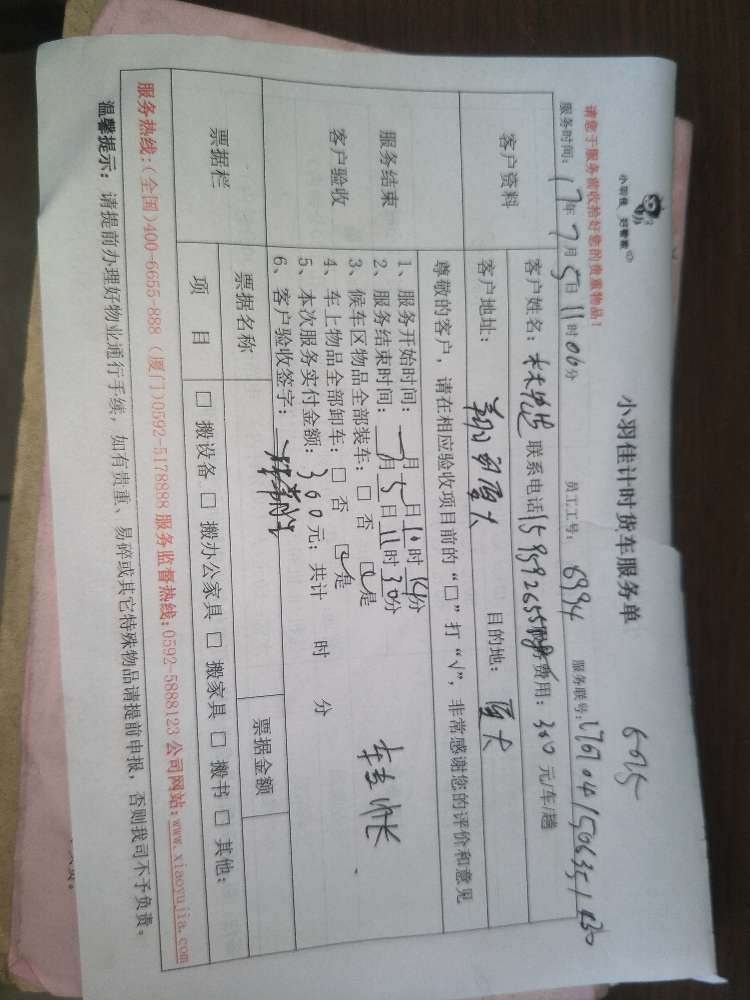 小羽佳 好帮教
小羽佳计时货车服务单
6015
请您于服务前收拾好您的贵重物品!
服务时间: 17年7月5日11时06分 员工工号: 6994 服务联号:
客户资料
客户姓名: 联系电话 服务费用: 300 元/车/趟
客户地址: 厦大 目的地: 厦大
服务结束
客户验收
尊敬的客户,请在相应验收项目前的“□”打“√”,非常感谢您的评价和意见
1、服务开始时间: 7月5日10时14分
2、服务结束时间: 7月5日11时30分
3、候车区物品全部装车: □ 否 ☑是
4、车上物品全部卸车: □ 否 ☑是
5、本次服务实付金额: 300元; 共计 时 分
6、客户验收签字:
票据栏
票据名称 票据金额
项 目 □ 搬设备 □ 搬办公家具 □ 搬家具 □ 搬书 □ 其他:
服务热线:(全国)400-6655-888 (厦门)0592-5178888 服务监督热线:0592-5888123 公司网站:www.xiaoyujia.com
温馨提示: 请提前办理好物业通行手续,如有贵重、易碎或其它特殊物品请提前申报,否则我司不予负责。